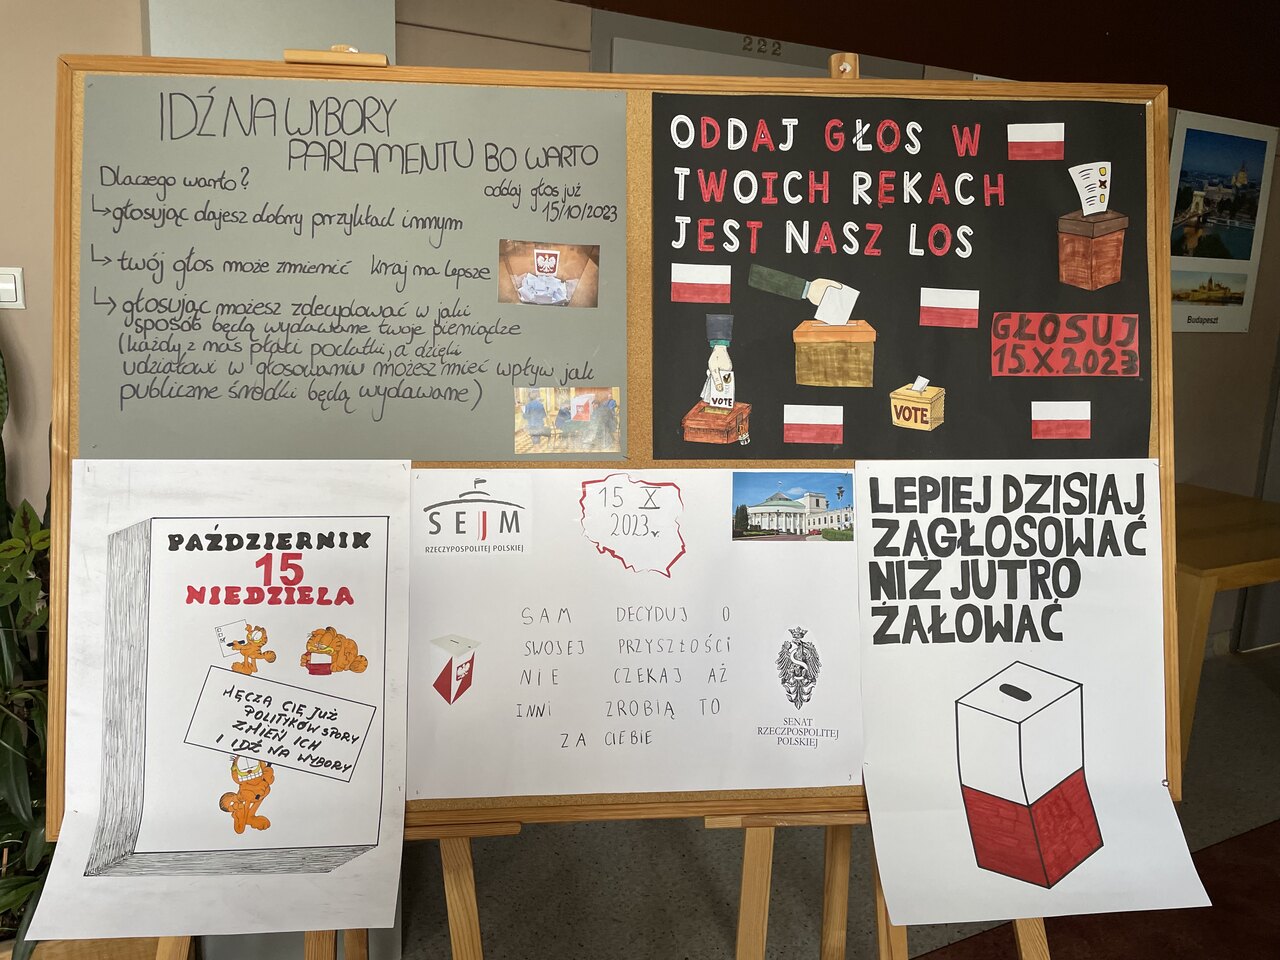 222
IDŹ NA WYBORY
PARLAMENTU BO WARTO
Dlaczego warto?
oddaj głos już
15/10/2023
głosując dajesz dobry przykład innym
twój głos może zmienić kraj na lepsze
głosując możesz zdecydować w jaki
sposób będą wydawane twoje pieniądze
(każdy z nas płaci podatki, a dzięki
udziałowi w głosowaniu możesz mieć wpływ jak
publiczne środki będą wydawane)
ODDAJ GŁOS W
TWOICH RĘKACH
JEST NASZ LOS
GŁOSUJ
15.X.2023
VOTE
VOTE
Budapeszt
PAŹDZIERNIK
15
NIEDZIELA
MĘCZĄ CIĘ JUŻ
POLITYKÓW SPORY
ZMIEŃ ICH
I IDŹ NA WYBORY
SEJM
RZECZYPOSPOLITEJ POLSKIEJ
15 X
2023r.
SAM DECYDUJ O
SWOJEJ PRZYSZŁOŚCI
NIE CZEKAJ AŻ
INNI ZROBIĄ TO
ZA CIEBIE
SENAT
RZECZYPOSPOLITEJ
POLSKIEJ
LEPIEJ DZISIAJ
ZAGŁOSOWAĆ
NIŻ JUTRO
ŻAŁOWAĆ